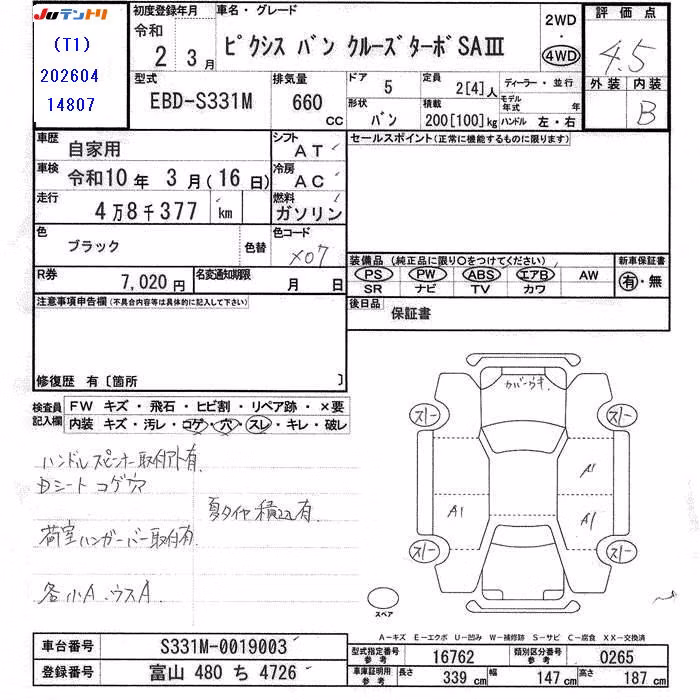 JUテントリ
(T1)
202604
14807
初度登録年月
令和
2 3月
車名・グレード
ピクシス バン クルーズターボSAⅢ
2WD
・
4WD
評価点
4.5
外装 内装
B
型式
EBD-S331M
排気量
660
CC
ドア
5
形状
バン
定員
2[4]人
積載
200[100]kg
ディーラー・並行
モデル年式 年
ハンドル 左・右
車歴
自家用
シフト
AT
車検
令和10年 3月(16日)
冷房
AC
走行
4万8千377 km
燃料
ガソリン
色
ブラック
色替
色コード
X07
R券
7,020円
名変通知期限
月 日
セールスポイント(正常に機能するものに限ります)
装備品(純正品に限り○をつけてください)
PS PW ABS エアB AW
SR ナビ TV カワ
新車保証書
有・無
後日品
保証書
注意事項申告欄(不具合内容等は具体的に記入して下さい)
修復歴 有〔箇所 〕
検査員記入欄
FW キズ・飛石・ヒビ割・リペア跡・×要
内装 キズ・汚レ・コゲ・穴・スレ・キレ・破レ
ハンドルスピンナー取付アト有
Dシート コゲ穴
夏タイヤ積込有
荷室ハンガーバー取付有
各小A、ウスA
スレー
スレー
A1
A1
A1
スレー
スレー
スペア
A-キズ E-エクボ U-凹み W-補修跡 S-サビ C-腐食 XX-交換済
車台番号
S331M-0019003
登録番号
富山 480 ち 4726
型式指定番号
参考
16762
類別区分番号
参考
0265
車庫証明用
参考
長さ
339 cm
幅
147 cm
高さ
187 cm